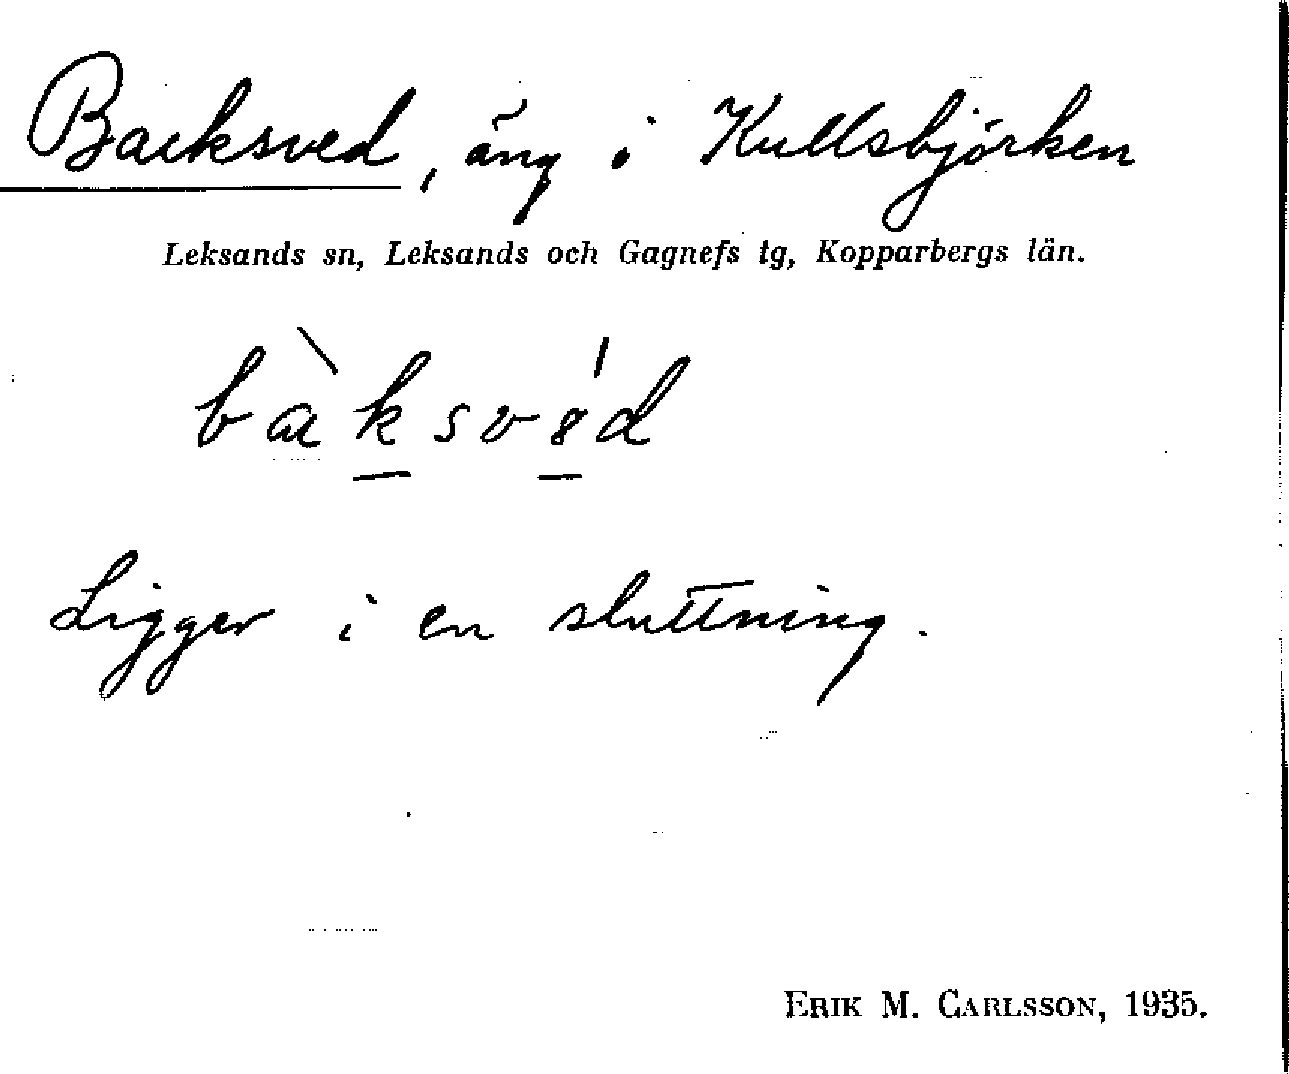 Backsved, äng i Kullsbjörken
Leksands sn, Leksands och Gagnefs tg, Kopparbergs län.
Ligger i en sluttning.
ERIK M. CARLSSON, 1935.